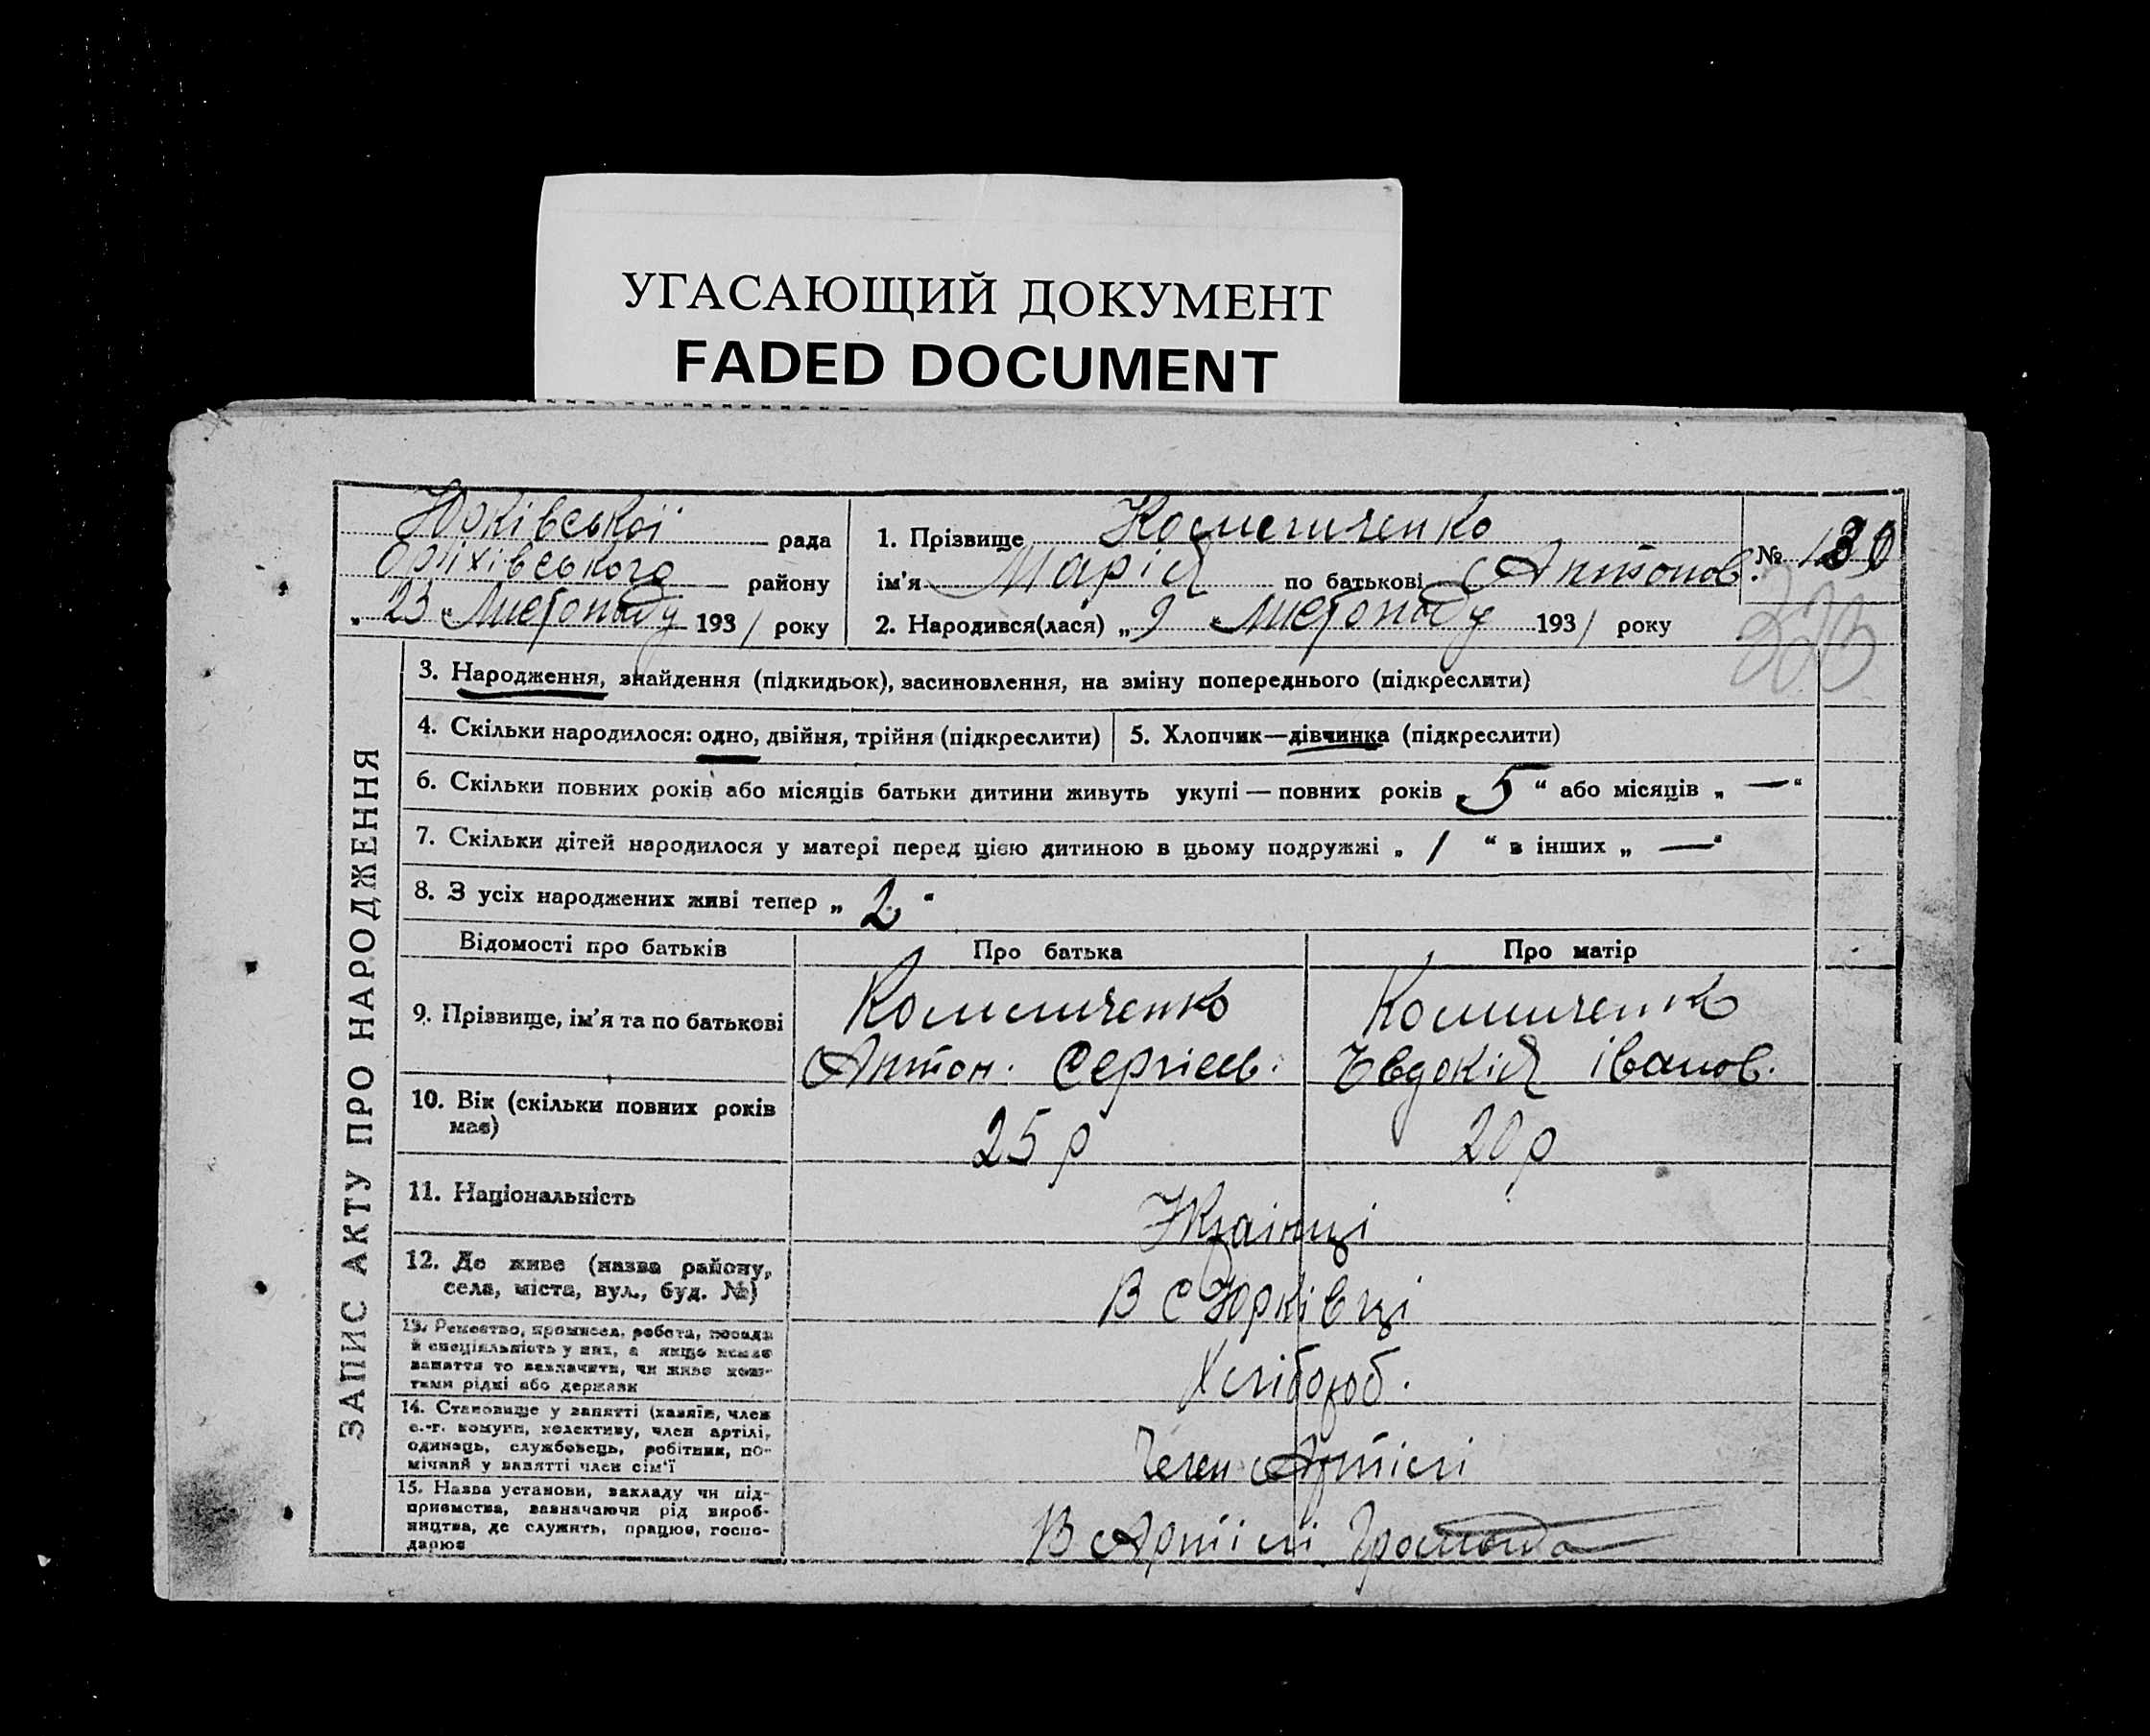 УГАСАЮЩИЙ ДОКУМЕНТ
FADED DOCUMENT
Юрківської рада
Оріхівського району
„ 23 „ Листопаду 1931 року
1. Прізвище
ім'я Марія по батькові Антонов.
2. Народився(лася) „ 9 „ Листопаду 1931 року
№ 130
ЗАПИС АКТУ ПРО НАРОДЖЕННЯ
3. Народження, знайдення (підкидьок), засиновлення, на зміну попереднього (підкреслити)
4. Скільки народилося: одно, двійня, трійня (підкреслити)
5. Хлопчик—дівчинка (підкреслити)
6. Скільки повних років або місяців батьки дитини живуть укупі — повних років „ 5 “ або місяців „ — “
7. Скільки дітей народилося у матері перед цією дитиною в цьому подружжі „ 1 “ в інших „ — “
8. З усіх народжених живі тепер „ 2 “
Відомості про батьків Про батька Про матір
9. Прізвище, ім'я та по батькові
Антон. Сергієв. Євдокія Іванов.
10. Вік (скільки повних років має) 25 р 20 р
11. Національність Українці
12. Де живе (назва району, села, міста, вул., буд. №) В с Юрківці
13. Ремество, промисел, робота, посада й спеціяльність у них, а якщо немає заняття то зазначити, чи живе коштами рідні або держави Хлібороб.
14. Становище у занятті (хазяїн, член с.-г. комуни, колективу, член артілі, одинець, службовець, робітник, помічний у занятті член сім'ї Член Артілі
15. Назва установи, закладу чи підприємства, зазначаючи рід виробництва, де служить, працює, господарює В Артілі Громада